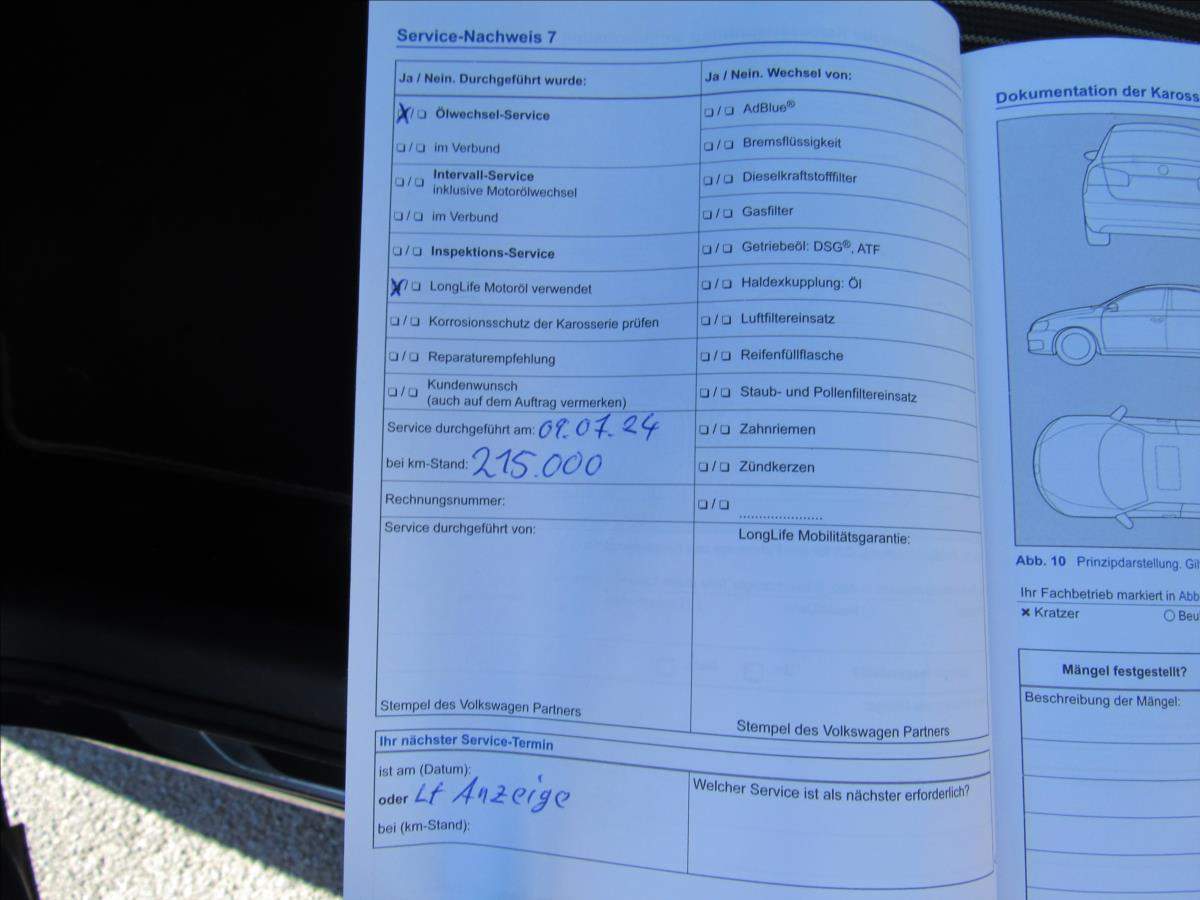 Service-Nachweis 7
Ja / Nein. Durchgeführt wurde:
X/❑ Ölwechsel-Service
❑/❑ im Verbund
❑/❑ Intervall-Service
inklusive Motorölwechsel
❑/❑ im Verbund
❑/❑ Inspektions-Service
X/❑ LongLife Motoröl verwendet
❑/❑ Korrosionsschutz der Karosserie prüfen
❑/❑ Reparaturempfehlung
❑/❑ Kundenwunsch
(auch auf dem Auftrag vermerken)
Service durchgeführt am: 09.07.24
bei km-Stand: 215.000
Rechnungsnummer:
Service durchgeführt von:
Stempel des Volkswagen Partners
Ja / Nein. Wechsel von:
❑/❑ AdBlue®
❑/❑ Bremsflüssigkeit
❑/❑ Dieselkraftstofffilter
❑/❑ Gasfilter
❑/❑ Getriebeöl: DSG®, ATF
❑/❑ Haldexkupplung: Öl
❑/❑ Luftfiltereinsatz
❑/❑ Reifenfüllflasche
❑/❑ Staub- und Pollenfiltereinsatz
❑/❑ Zahnriemen
❑/❑ Zündkerzen
❑/❑ .....................
LongLife Mobilitätsgarantie:
Stempel des Volkswagen Partners
Ihr nächster Service-Termin
ist am (Datum):
oder Lt Anzeige
bei (km-Stand):
Welcher Service ist als nächster erforderlich?
Dokumentation der Kaross
Abb. 10 Prinzipdarstellung. Gil
Ihr Fachbetrieb markiert in Abb
× Kratzer
○ Beu
Mängel festgestellt?
Beschreibung der Mängel: